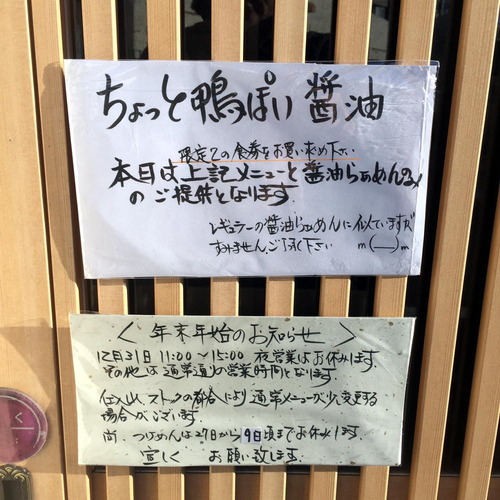 ちょっと鴨ぽい醤油
限定2の食券をお買い求め下さい
本日は上記メニューと醤油らぁめんのみ
のご提供となります。
レギュラーの醤油らぁめんに似ていますが
すみません、ご了承下さい m(__)m
〈 年末年始のお知らせ 〉
12月31日 11:00〜15:00 夜営業はお休みです
その他は通常通りの営業時間となります
仕込み、ストックの都合により通常メニューが少々変更する
場合がございます
尚、つけめんは27日から9日頃までお休みします。
宜しく お願い致します